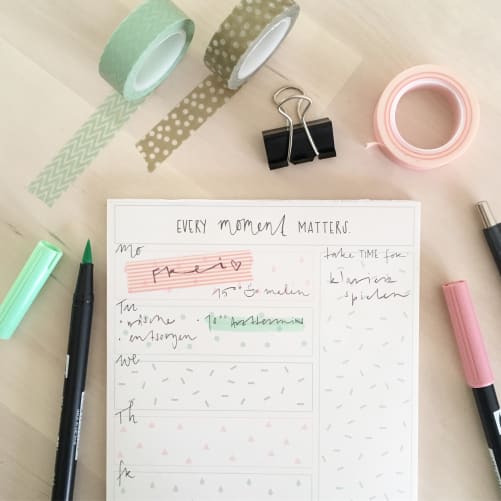 EVERY moment MATTERS.
Mo
Frei ♡
15°° malen
Tu
• wäsche
• entsorgen
• 10°° Arzttermin
We
Th
Fr
take TIME for:
klavier
spielen